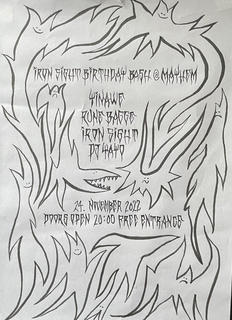 IRON SIGHT BIRTHDAY BASH @ MAYHEM
YINAWE
RUNE BAGGE
IRON SIGHT
DJ YAYO
24. NOVEMBER 2022
DOORS OPEN 20:00 FREE ENTRANCE